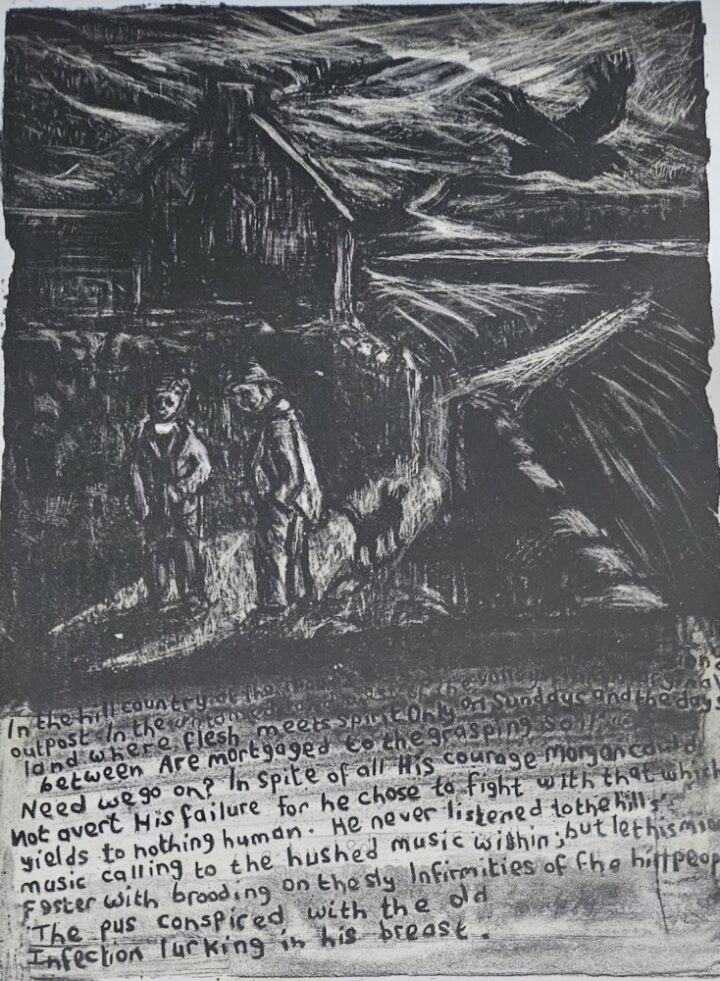 In the hill country at the
outpost In the untamed west of the valley marginal
land where flesh meets spirit Only on Sundays and the days
between Are mortgaged to the grasping soil
Need we go on? In spite of all His courage Morgan could
Not avert His failure for he chose to fight with that which
yields to nothing human. He never listened to the hills'
music calling to the hushed music within; but let his
Fester with brooding on the sly Infirmities of the hill
The pus conspired with the old
Infection lurking in his breast.